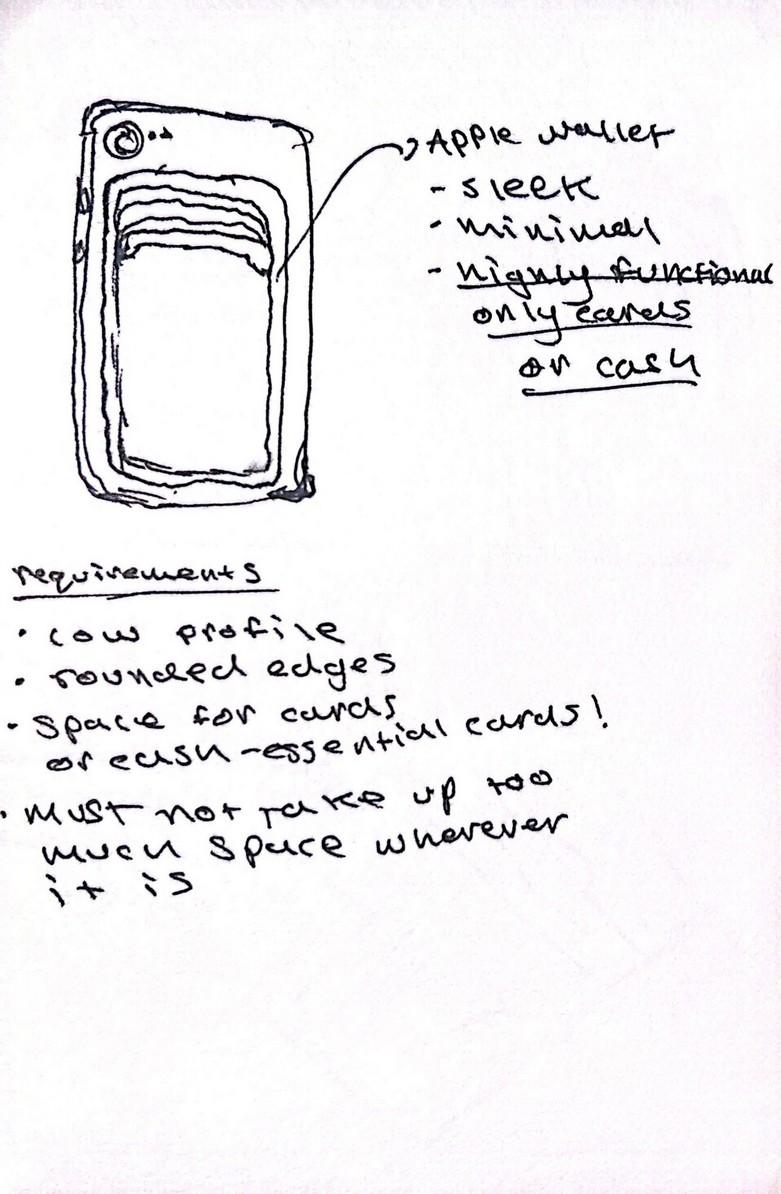 Apple wallet
- sleek
- minimal
- highly functional
only cards
or cash
requirements
• low profile
• rounded edges
- space for cards
or cash - essential cards!
• must not take up too
much space wherever
it is